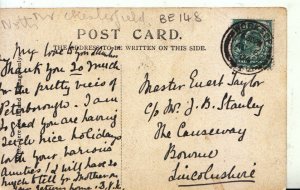 Nottm Chesterfield BE148
POST CARD.
THE ADDRESS TO BE WRITTEN ON THIS SIDE.
My love to you
Thank you so much
for the pretty view of
Peterborough. I am
so glad you are having
such nice holidays
with your various
Aunties I will have so
much to tell your Mother on
returns home. 
Master Ewart Taylor
c/o Mr. J. B. Stanley
The Causeway
Bourne
Lincolnshire